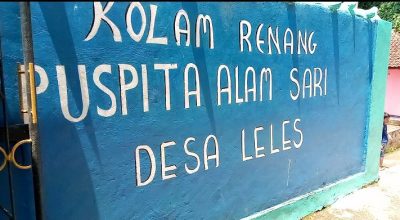 KOLAM RENANG
PUSPITA ALAM SARI
DESA LELES